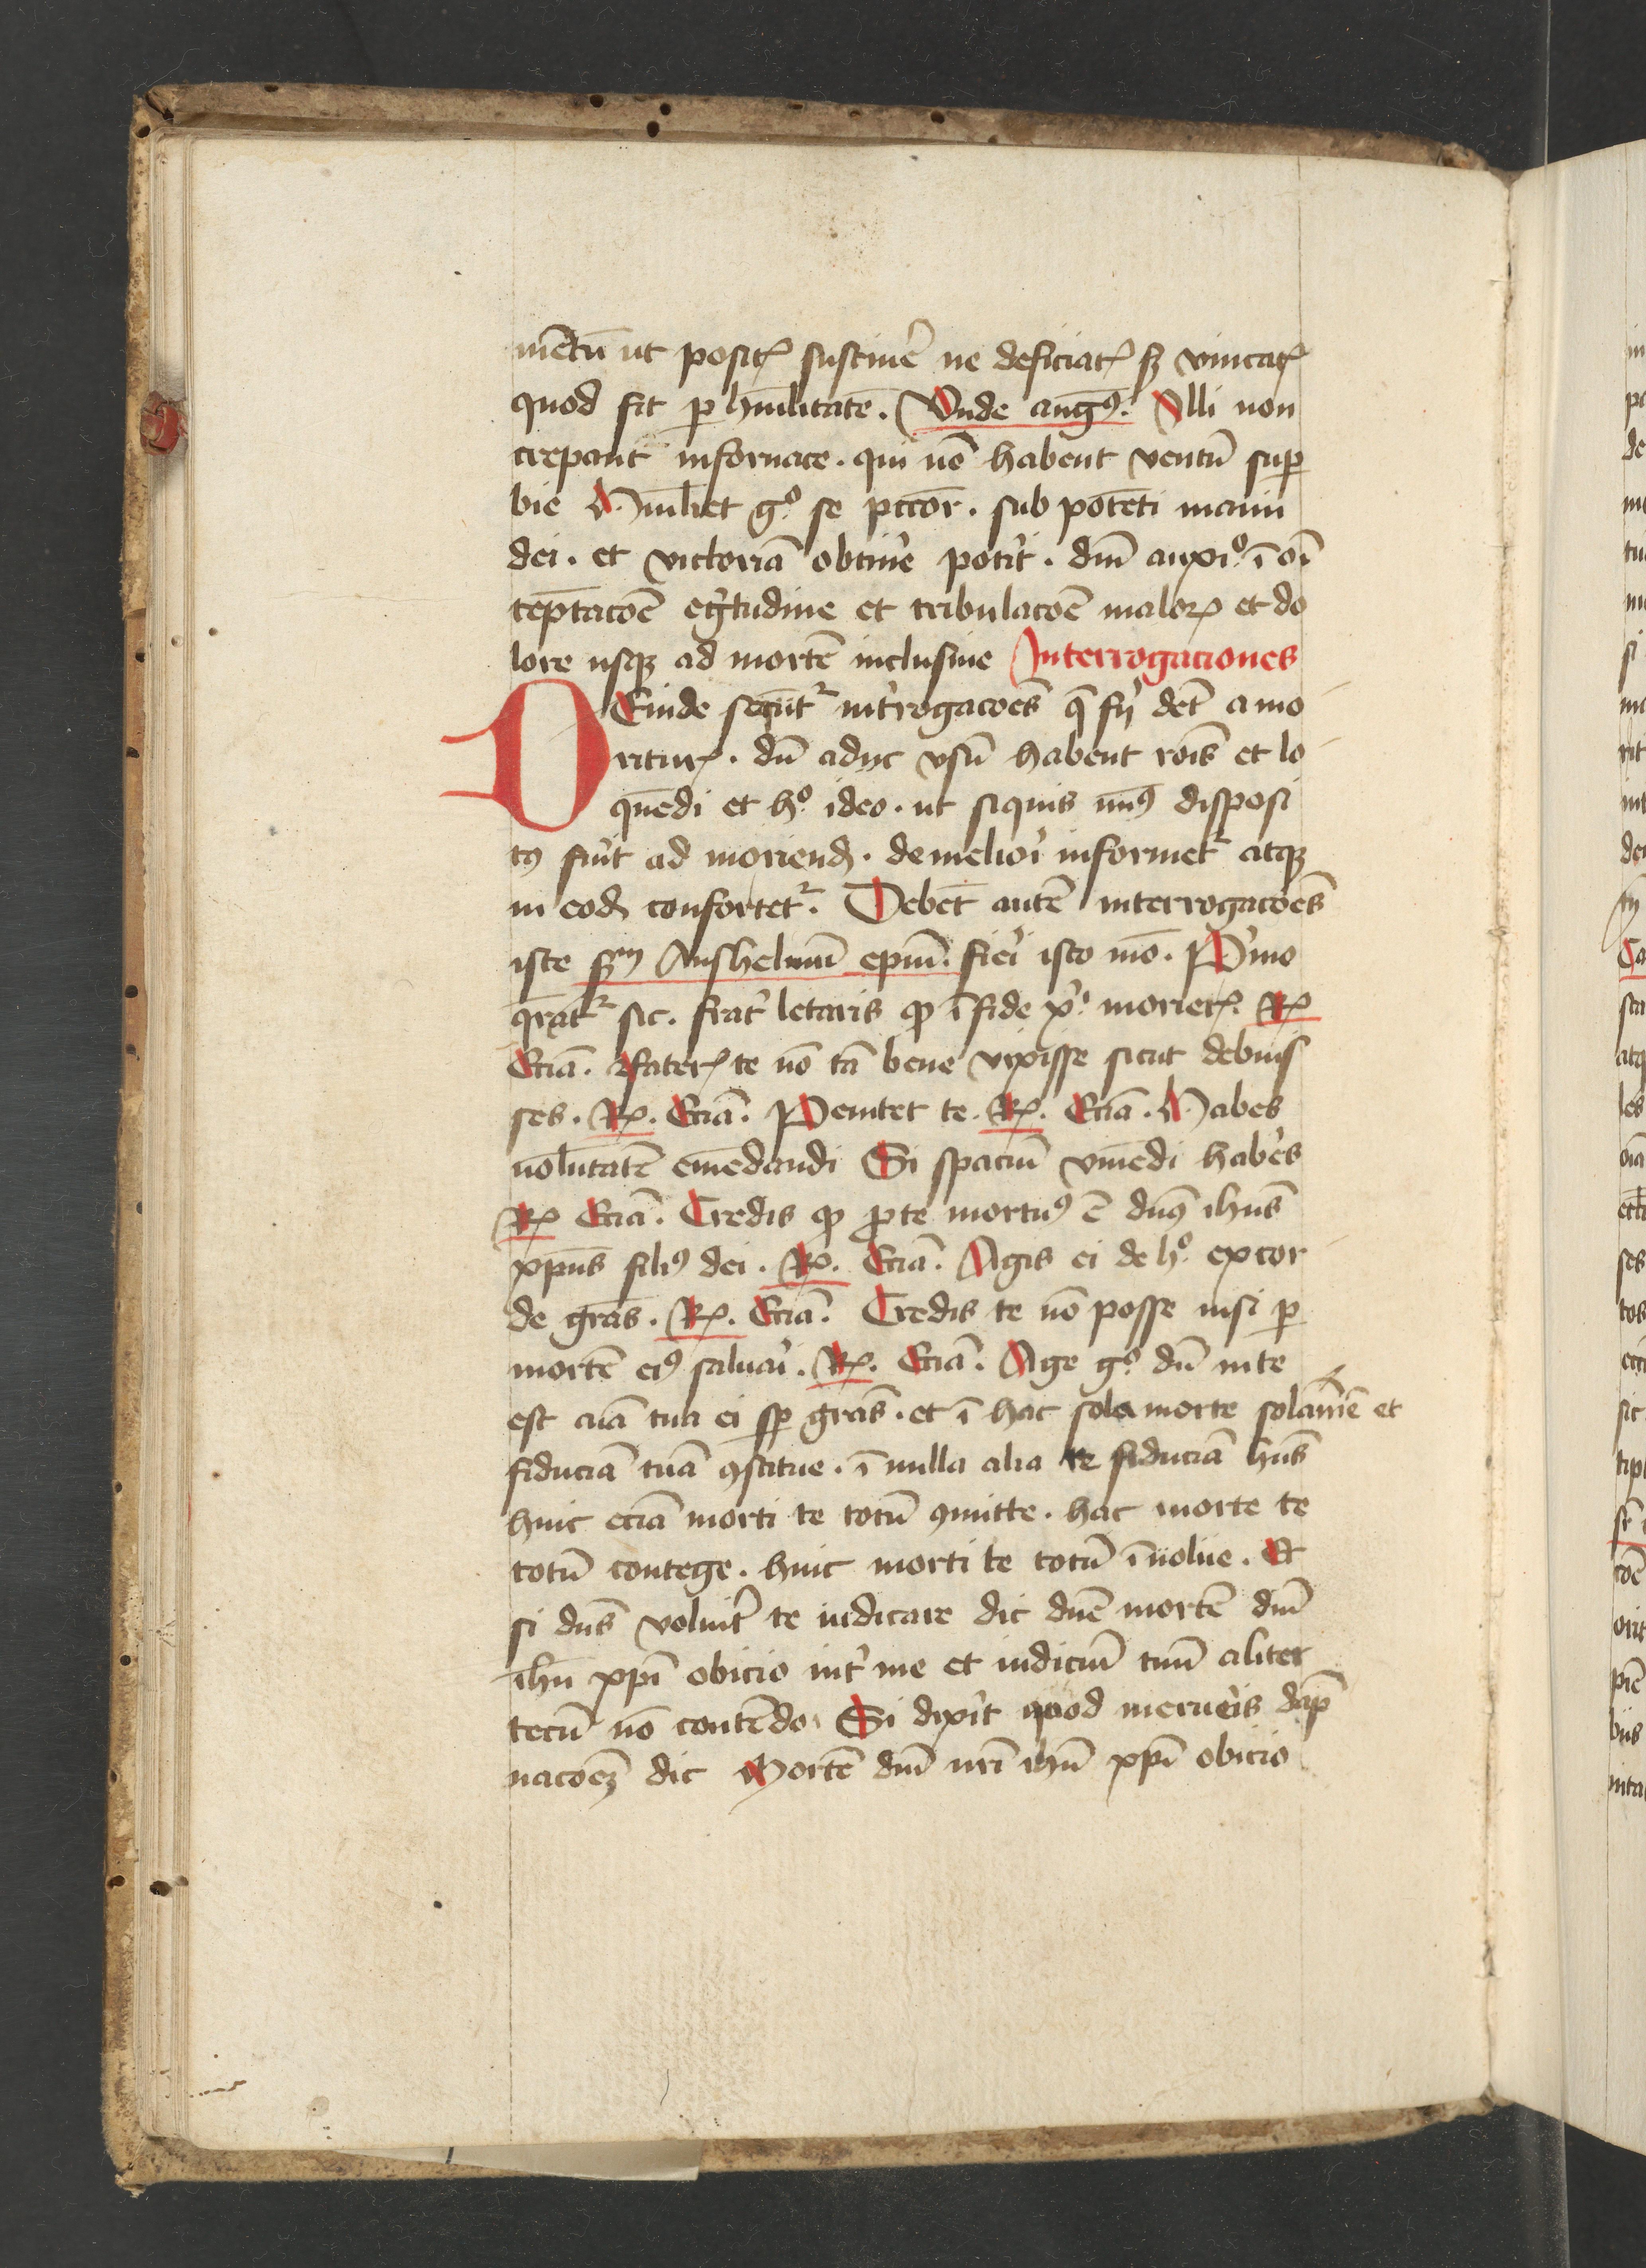 mētū ut positꝭ sustine᷑ ne deficiatꝭ sꝫ vincatꝭ
quod fit ꝑ hūilitatē. Vnde augꝰ. Illi non
crepant infornace. qui nō habent ventū suꝑ
bie Humilīet gº se pctōr. sub potēti manu
dei. et victoriā obtine᷑ pot᷑it. dn̄i auxiº ī oī
tēptacōe egr᷑tudine et tribulacōe maloꝝ et do
lore usqꝫ ad mortē inclusiue Interrogaciones
DEinde secūt᷑ int᷑rogacōes q̄ fij det̄ a mo
rituꝝ. dū adhc vsū habent rōis et lo
quēdi et hº ideo. ut siquis minꝰ disposi
tꝰ fu᷑it ad moriend. de meliori informet᷑ atqꝫ
in eod confortet᷑. Debēt autē interrogacōes
iste scd̄m Anshelmū epm̄. fie᷑i isto mō. Pimo
q̄rat᷑ sic. frat᷑ letaris ꝙ ī fide xi᷑ morierꝭ. Rꝭ
Eciā. Faterꝭ te nō tā bene vixisse sicut debuis
ses. Rꝭ. Eciā. Penitet te. Rꝭ. Eciā. Habes
uoluntatē emēdandi Si spaciū viuēdi habe᷑s
Rꝭ Eciā. Credis ꝙ ꝓ te mortuꝰ ē dn̄s ihūs
xp̄us filiꝰ dei. Rꝭ. Eciā. Agis ei de hº ex cor
de grās. Rꝭ. Eciā. Credis te nō posse nisi ꝑ
mortē eiꝰ saluari᷑. Rꝭ. Eciā. Age gº dū in te
est aīa tua ei sꝑ grās. et ī hac sola morte solāmē et
fiduciā tuā ꝯstitue. ī nulla alia re fiduciā hn̄s
huic eciā morti te totū ꝯmitte. hac morte te
totū contege. huic morti te totū īuolue. Et
si dn̄s voluit᷑ te iudicare dic dn̄e mortē dn̄i
ih̄u xp̄i obicio int᷑ me et iudiciū tuū aliter
tecū nō contēdo. Si dix᷑it quod merue᷑is dāp
nacōeꝫ dic Mortē dn̄i nr̄i ih̄u xp̄i obicio